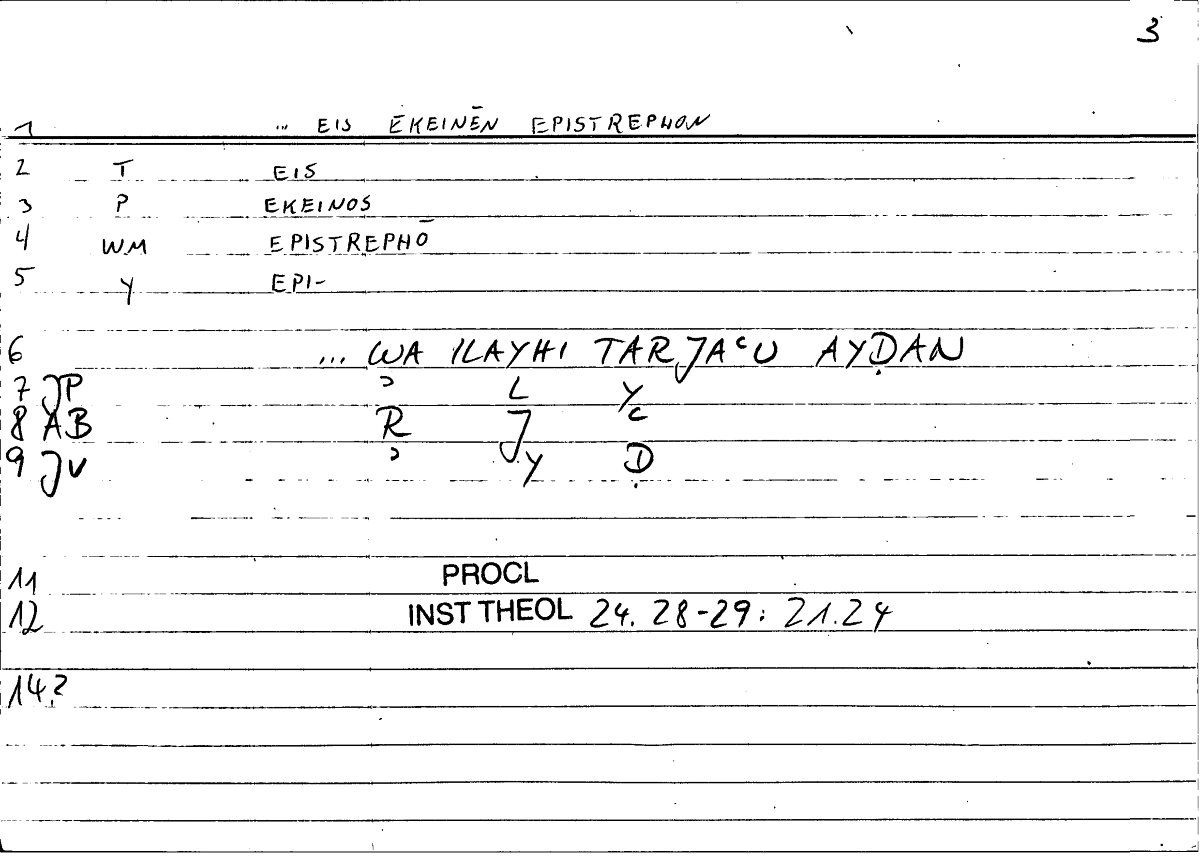 3
1 ... EIS ĒKEINĒN EPISTREPHON
2 T EIS
3 P EKEINOS
4 WM EPISTREPHŌ
5 Y EPI-
6 ... WA ILAYHI TARJAʿU AYḌAN
7 JP ʾ L Y
8 AB R J ʿ
9 JV ʾ Y Ḍ
11 PROCL
12 INST THEOL 24. 28-29: 21.24
14?